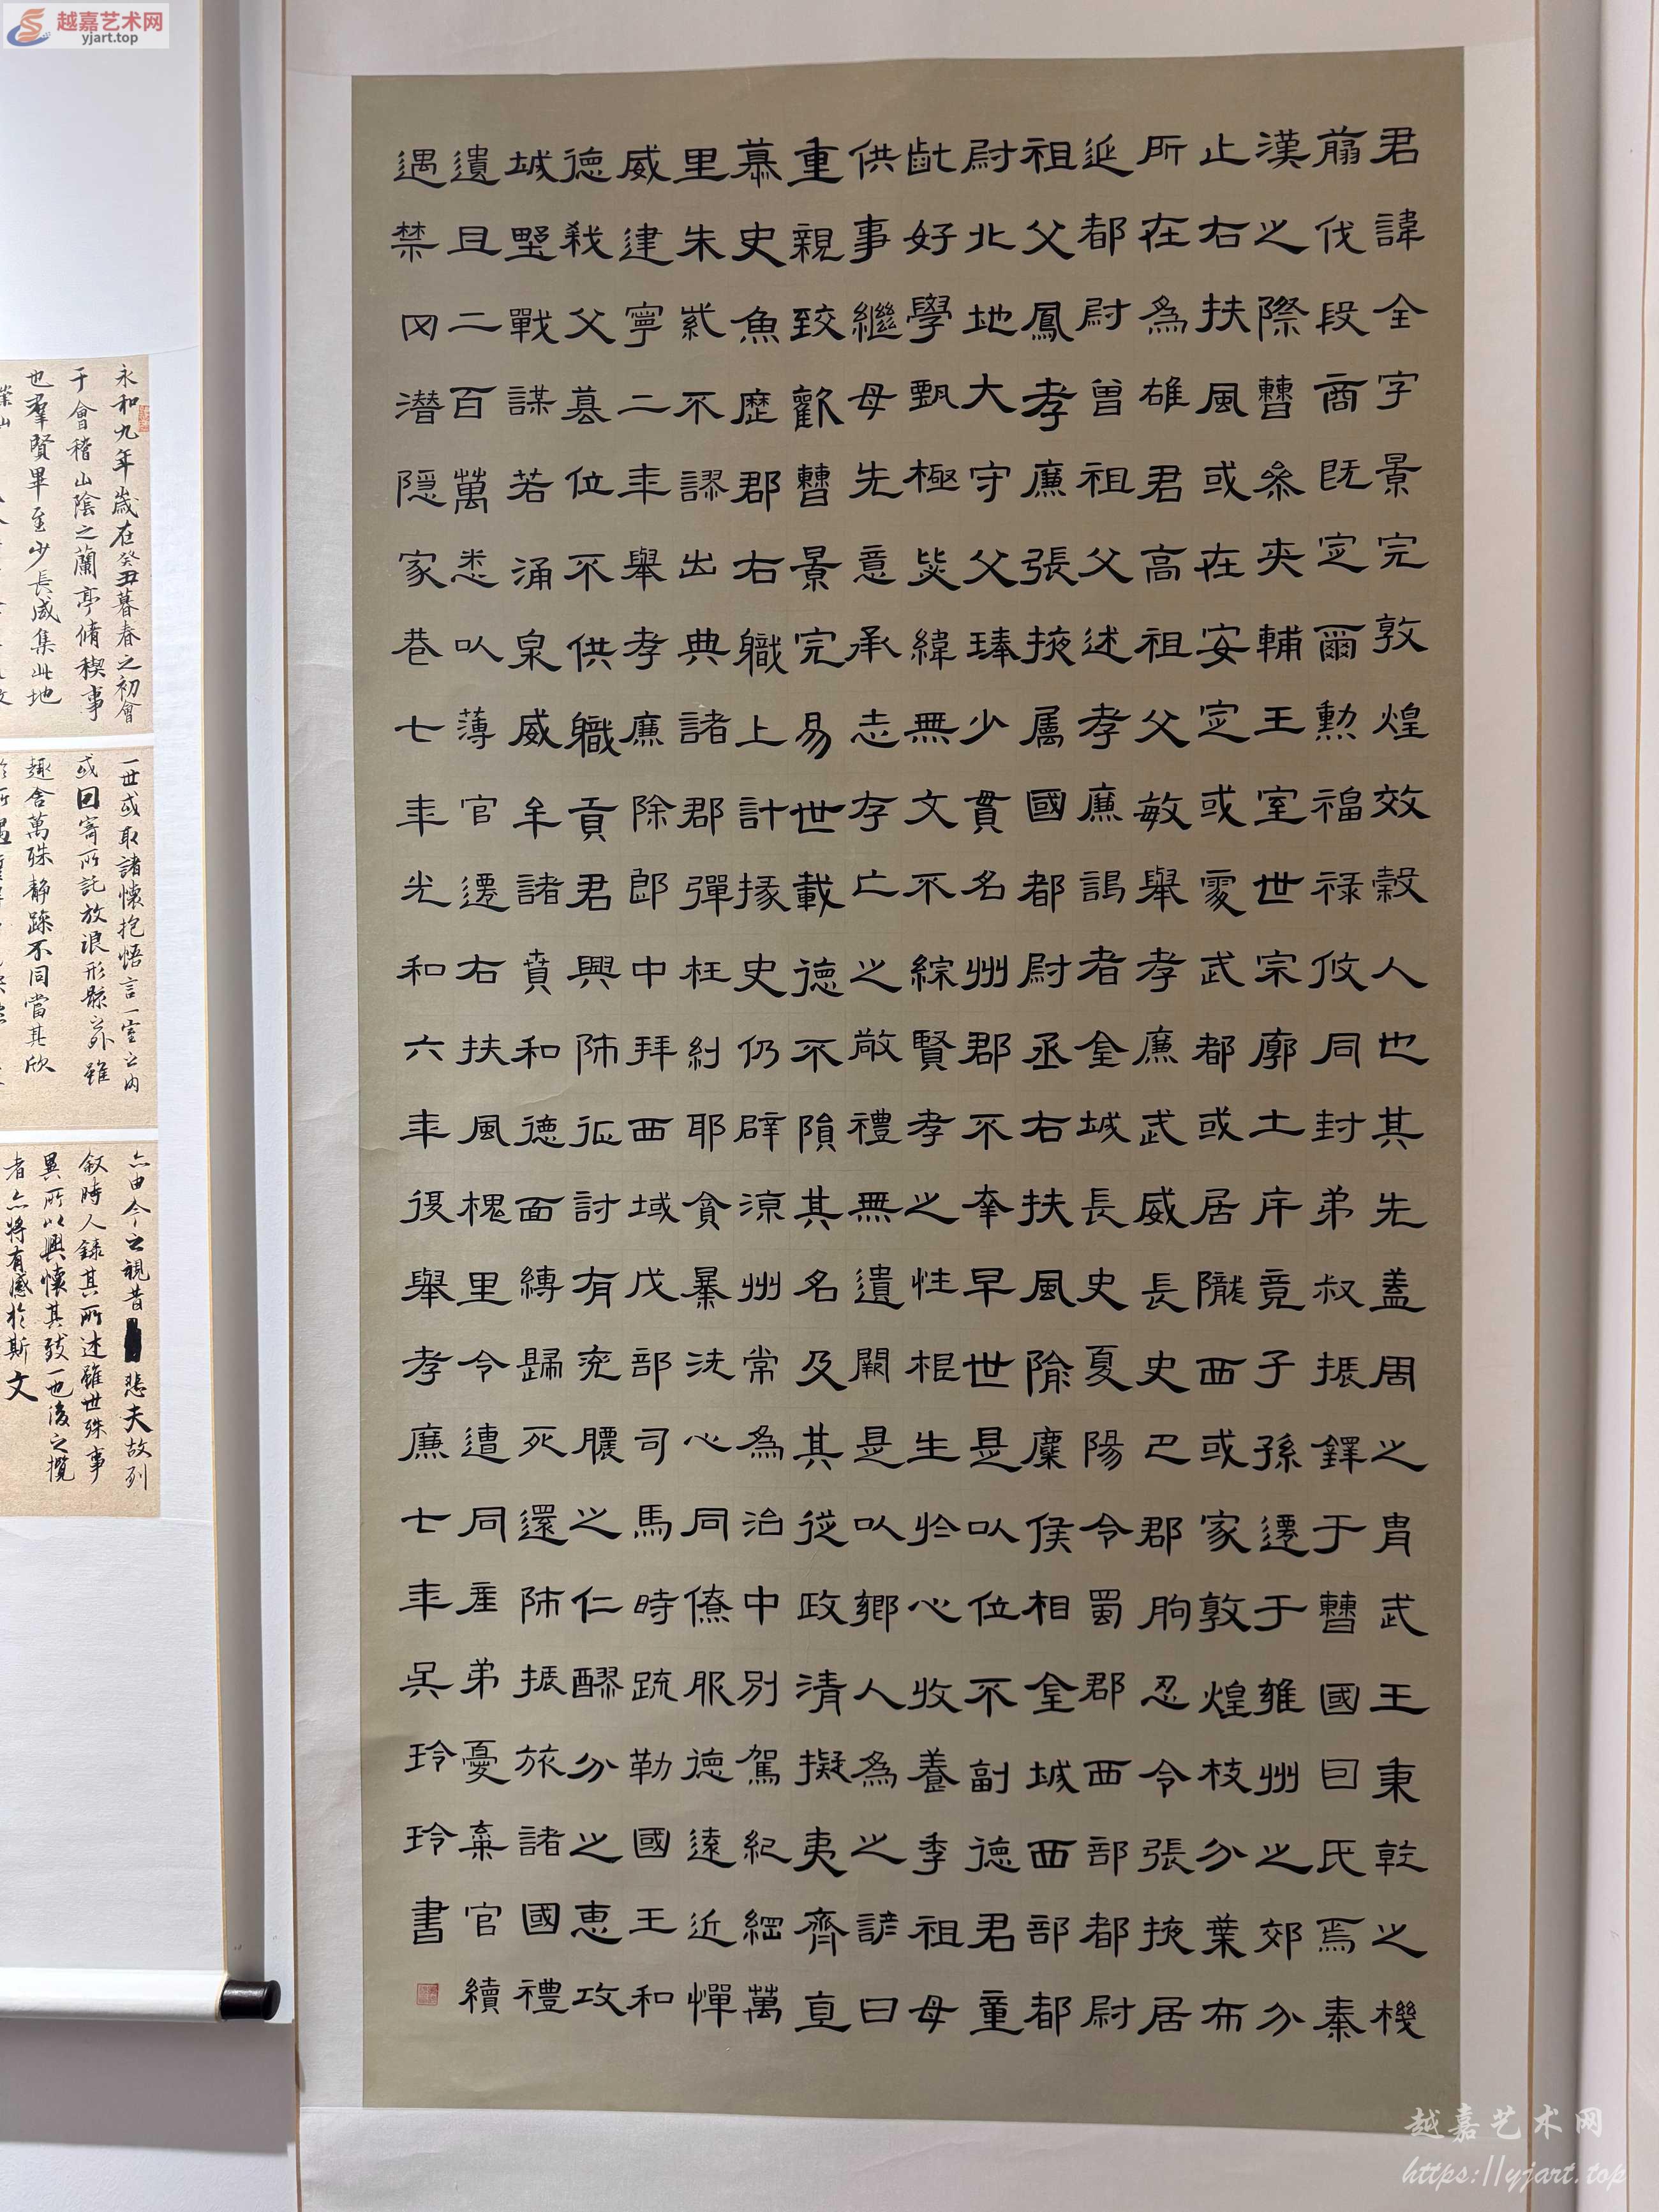 越嘉艺术网
yjart.top
君諱全字景完敦煌效穀人也其先蓋周之胄武王秉乾之機
翦伐段商既定爾勳福祿攸同封弟叔振鐸于曹國囙氏焉秦
漢之際曹參夾輔王室世宗廓土斥竟子孫遷于雍州之郊分
止右扶風或在安定或處武都或居隴西或家敦煌枝分葉布
所在為雄君高祖父敏舉孝廉武威長史巴郡朐忍令張掖居
延都尉曾祖父述孝廉謁者金城長史夏陽令蜀郡西部都尉
祖父鳳孝廉張掖屬國都尉丞右扶風隃麋侯相金城西部都
尉北地大守父琫少貫名州郡不幸早世是以位不副德君童
齔好學甄極毖緯無文不綜賢孝之性根生於心收養季祖母
供事繼母先意承志存亡之敬禮無遺闕是以鄉人為之諺曰
重親致歡曹景完易世載德不隕其名及其從政清擬夷齊直
慕史魚歷郡右職上計掾史仍辟涼州常為治中別駕紀綱萬
里朱紫不謬出典諸郡彈枉糾邪貪暴洗心同僚服德遠近憚
威建寧二年舉孝廉除郎中拜西域戊部司馬時疏勒國王和
德殺父篡位不供職貢君興師征討有兗膿之仁分醪之惠攻
城墅戰謀若涌泉威牟諸賁和德面縛歸死還師振旅諸國禮
遺且二百萬悉以薄官遷右扶風槐里令遭同產弟憂棄官續
遇禁罔潛隱家巷七年光和六年復舉孝廉七年吳玲玲書
永和九年歲在癸丑暮春之初會
于會稽山陰之蘭亭脩稧事
也羣賢畢至少長咸集此地
一世或取諸懷抱悟言一室之內
或因寄所託放浪形骸之外雖
趣舍萬殊靜躁不同當其欣
亦由今之視昔悲夫故列
敘時人錄其所述雖世殊事
異所以興懷其致一也後之攬
者亦將有感於斯文
越嘉艺术网
https://yjart.top